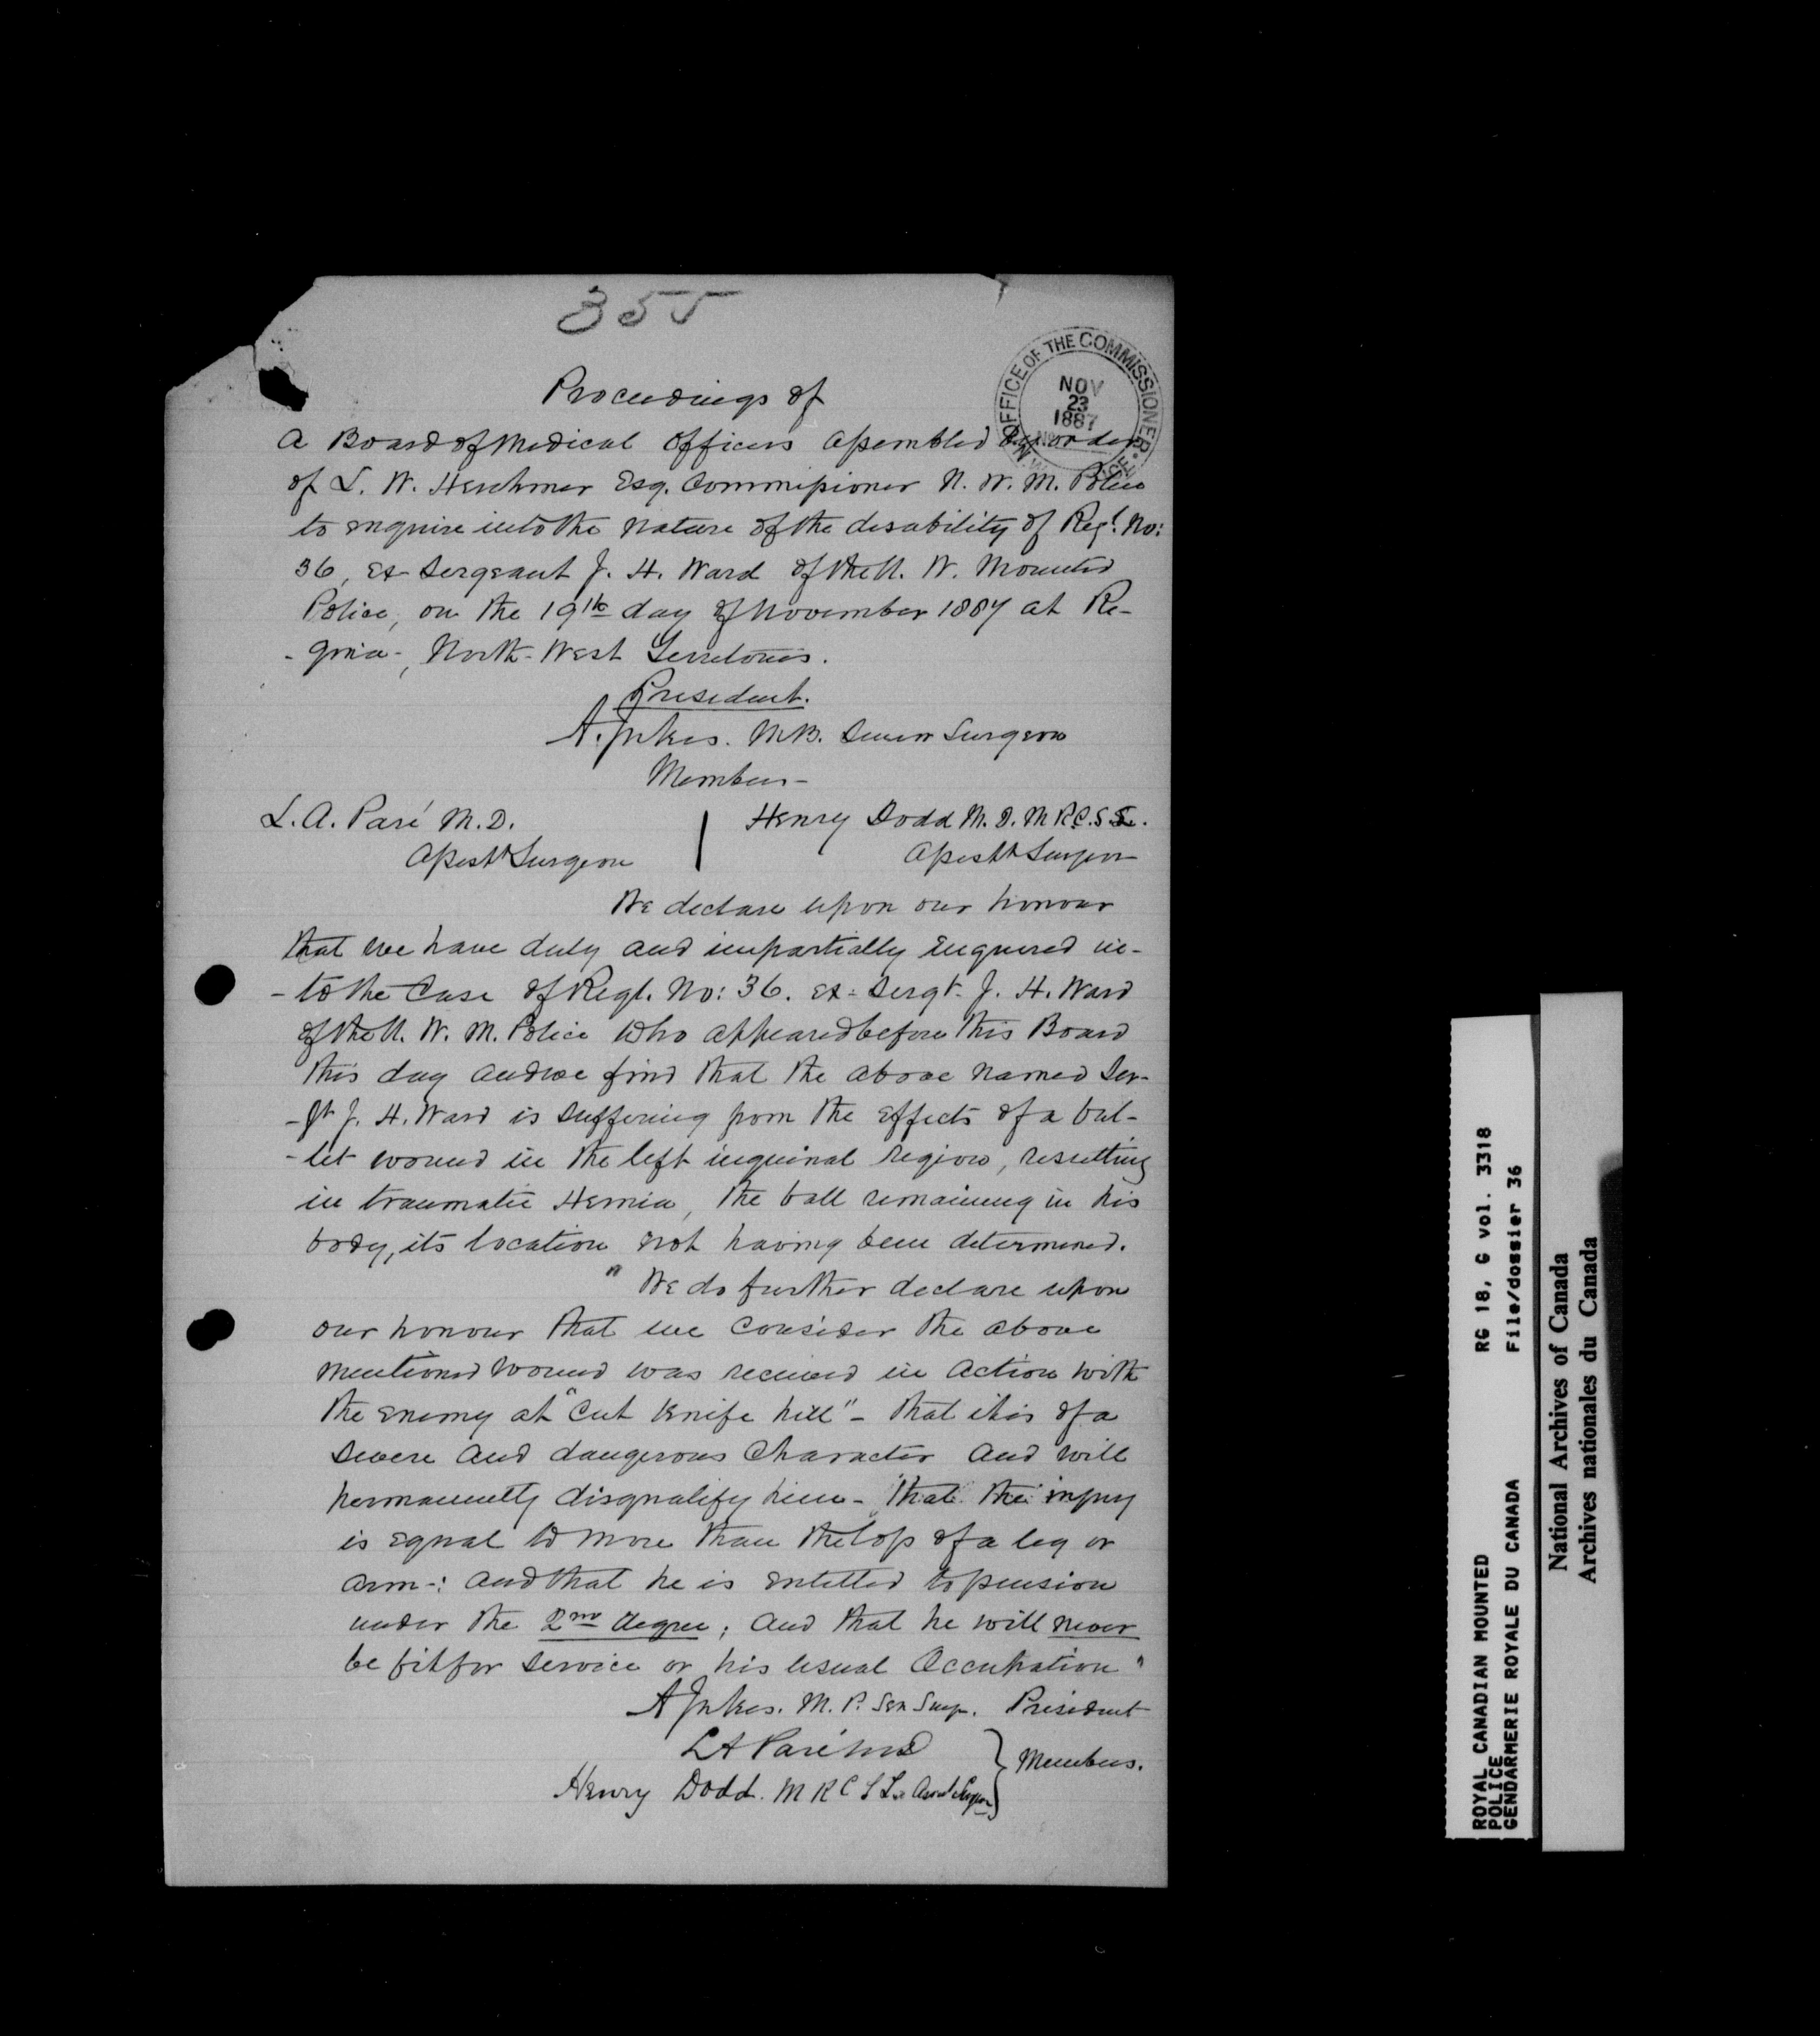 355
OFFICE OF THE COMMISSIONER
NOV
23
1887
Proceedings of
a Board of Medical Officers assembled by order
of L. W. Herchmer Esq. Commissioner N. W. M. Police
to enquire into the nature of the disability of Regt. No:
36, Ex-Sergeant J. H. Ward of the N. W. Mounted
Police, on the 19th day of November 1887 at Re-
-gina-, North-West Territories.
President.
A. Jukes. M.B. Senior Surgeon
Members-
L. A. Paré M.D.
Asst Surgeon
Henry Dodd M.D. M.R.C.S.
Asst Surgeon
We declare upon our honour
that we have duly and impartially enquired in-
-to the case of Regt. No: 36. Ex-Sergt. J. H. Ward
of the N. W. M. Police who appeared before this Board
this day and we find that the above named Ser-
-gt J. H. Ward is suffering from the effects of a bul-
-let wound in the left inguinal region, resulting
in traumatic Hernia, the ball remaining in his
body, its location not having been determined.
"We do further declare upon
our honour that we consider the above
mentioned wound was received in action with
the enemy at "Cut Knife hill"- that it is of a
severe and dangerous character and will
permanently disqualify him- that the injury
is equal to more than the loss of a leg or
arm-: and that he is entitled to pension
under the 2nd degree; and that he will never
be fit for service or his usual occupation"
A Jukes. M. B. Sen Surg. President
L A Paré MD
Henry Dodd. M R C S
Members.
ROYAL CANADIAN MOUNTED
POLICE
GENDARMERIE ROYALE DU CANADA
RG 18, G vol. 3318
File/dossier 36
National Archives of Canada
Archives nationales du Canada